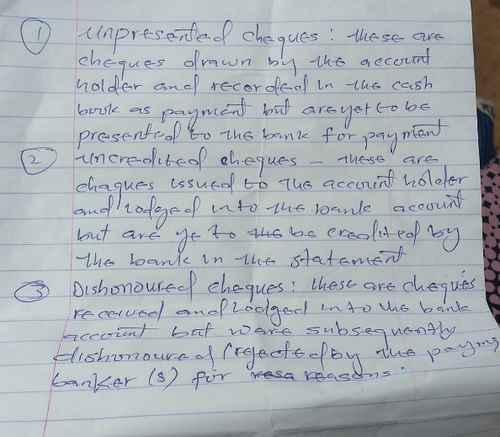 ① Unpresented cheques: these are
cheques drawn by the account
holder and recorded in the cash
book as payment but are yet to be
presented to the bank for payment
② Uncredited cheques - these are
cheques issued to the account holder
and lodged into the bank account
but are ye to the be credited by
the bank in the statement
③ Dishonoured cheques: these are cheques
received and lodged into the bank
account but were subsequently
dishonoured (rejected by the paying
banker (s) for resa reasons.